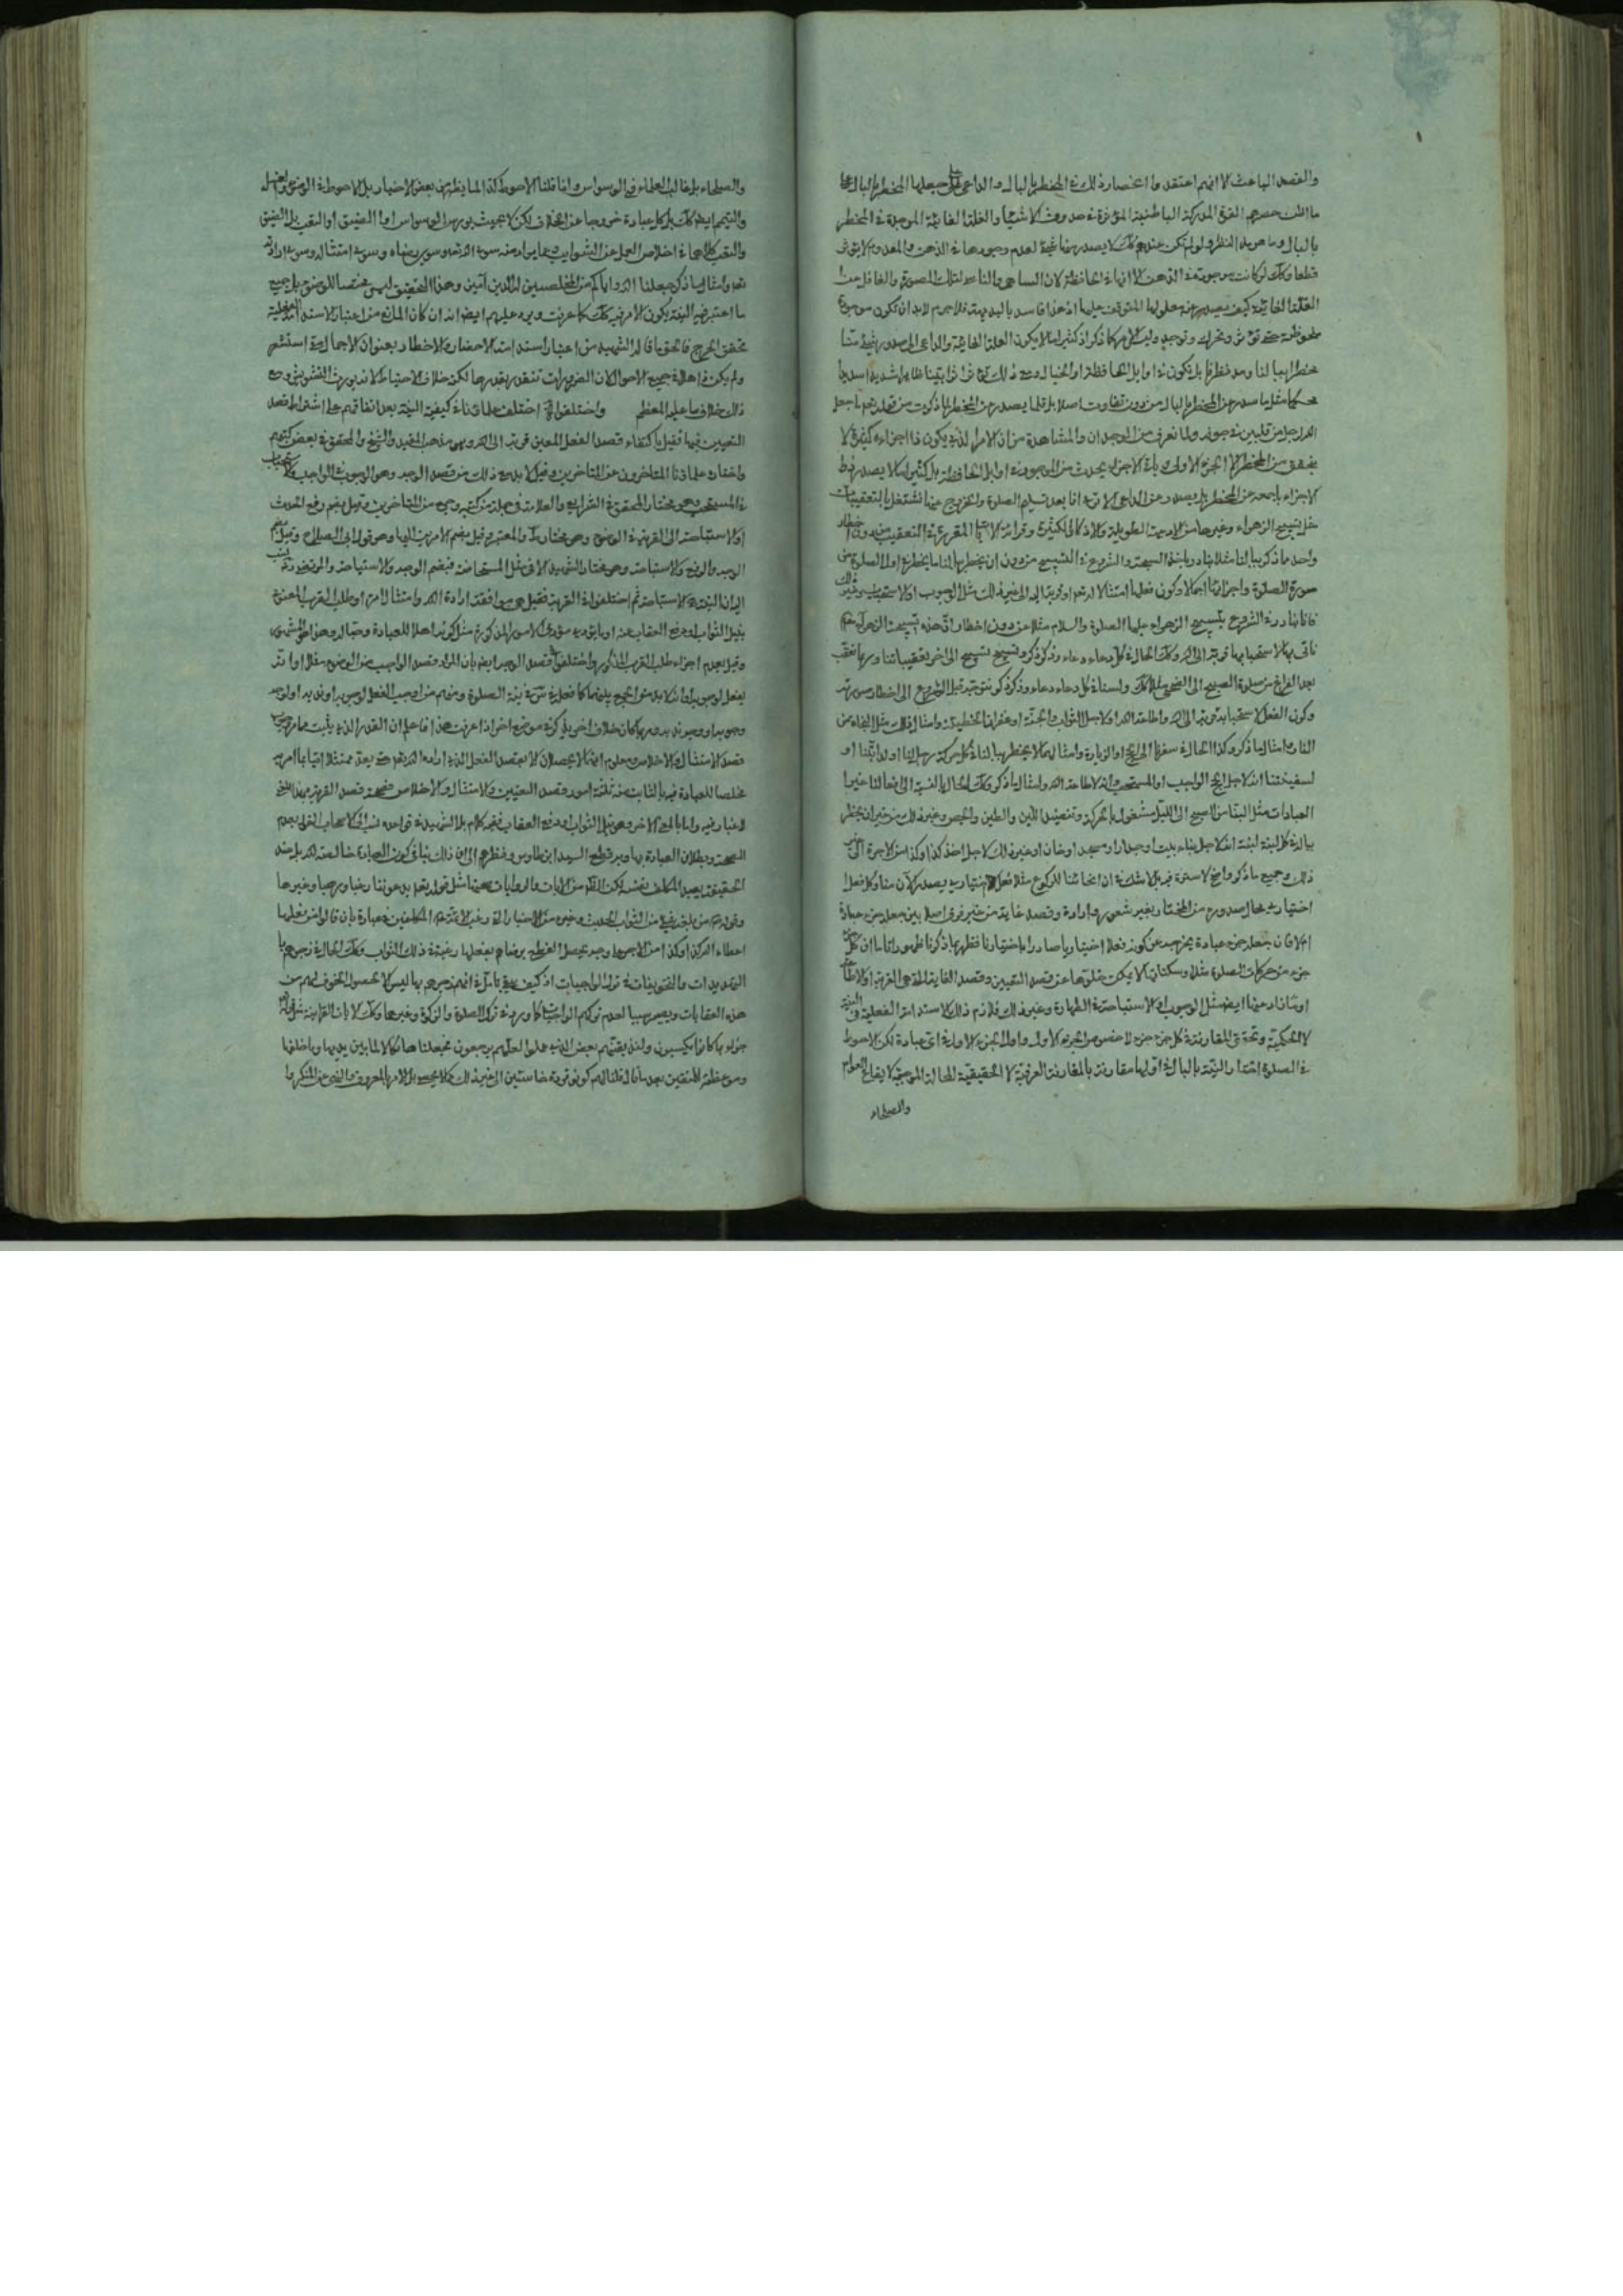 والقصد الباعث لا انهم اعتقدوا انحصار ذلك في المخطر بالبال والداعى على جعلها المخطر بالبال
ما الظن حصرهم القوة المدركة الباطنية المؤثرة في حدوث الاشياء والعلة الغائية الموجدة في المخطر
بالبال وما هو بهذا النظر ولو لم تكن عندهم كك لا يصدر منها شئ لعدم وجودها في الذهن والمعدوم لا يؤثر
قطعا وكك لو كانت موجودة في الذهن الا انها في الحافظة لان الساهى والناسى لتلك الصورة والغافل عن
العلة الغائية كيف يصدر عنه معلولها المتوقف عليها اذ هذا فاسد بالبديهة فلا جرم لا بد ان تكون موجودة
ملحوظة حتى تؤثر وتحرك وتوجد وليس الامر كما ذكر اذ كثيرا ما لا يكون العلة الغائية والداعى الى صدور شئ منا
مخطرا ببالنا
محكما مثل ما صدر عن المخطر بالبال من دون تفاوت اصلا بل قلما يصدر عن المخطر لما ذكرت من قوله تعالى ما جعل
الله لرجل من قلبين في جوفه ولما نعرف من الوجدان والمشاهدة من ان الامر الذي يكون ذا اجزاء كثيرة لا
يتحقق من المخطر الا الجزء الاول وباقى الاجزاء يحدث من الموجود في اوايل الحافظة بل كثيرا ما لا يصدر
الاجزاء باجمعه عن المخطر بل يصدر عن الداعى الا ترى انا بعد تسليم الصلوة والخروج عنها نشتغل بالتعقيبات
مثل تسبيح الزهراء وغيرها من الادعية الطويلة والاذكار الكثيرة وقرائة الايات المقررة في التعقيب من دون اخطار
واحد ما ذكر ببالنا مثلا نبادر باخذ السبحة والشروع في التسبيح من دون ان يخطر ببالنا ما يخطر في اول الصلوة من
صورة الصلوة واجزائها اجمالا وكون فعلها امتثالا لله تعالى او قربة اليه الى غير ذلك مثل الوجوب او الاستحباب وغير ذلك
فانا نبادر في الشروع بتسبيح الزهراء عليها الصلوة والسلام مثلا من دون اخطار ان هذه تسبيحة الزهراء
ناتى بها لاستحبابها قربة الى الله وكك الحال في كل دعاء دعاء وذكر ذكر وتسبيح تسبيح الى اخر تعقيباتنا وربما نعقب
بعد الفراغ من صلوة الصبح الى الضحى مثلا كك ولسنا في كل دعاء دعاء وذكر ذكر نتوجه قبل الشروع الى اخطار صورته
وكون الفعل لاستحبابه قربة الى الله واطاعة الله او لاجل الثواب والجنة او غفران الخطيئة وامثال ذلك مثل النجاة من
النار وامثال ما ذكر وكذا الحال في سفرنا الى الحج او الزيارة وامثالهما لا يخطر ببالنا في كل حركة رجل لنا او لدابتنا او
لسفينتنا انه لاجل الحج الواجب او المستحب وانه لاطاعة الله وامثال ما ذكر وكك الحال بالنسبة الى افعالنا غير
العبادات مثل البناء من الصبح الى الليل مشغول بالحركة وتنضيد اللبن والطين والجص وغير ذلك من غير ان يخطر
بباله في كل لبنة لبنة انه لاجل بناء بيت او جدار او مسجد او خان او غير ذلك لاجل اخذ كذا وكذا من الاجرة الى غير
ذلك وجميع ما ذكر واضح لا سترة فيه بل لا شك في ان انحنائنا للركوع مثلا فعل اختياري يصدر الان منا وكل فعل
اختياري محال صدوره من المختار بغير شعور وارادة وقصد غاية من غير فرق اصلا بين جعله من عبادة
ام لا فان جعله جزء عبادة يخرجه عن كونه فعلا اختياريا صادرا باختيارنا فظهر بما ذكرنا ظهورا تاما ان كل
جزء من حركات الصلوة مثلا وسكناتها لا يمكن خلوها عن قصد التعيين وقصد الغاية التى هي القربة او الاطاعة
او ما زاد عنها ايضا مثل الوجوب او الاستباحة في الطهارة وغير ذلك فلازم ذلك الاستدامة الفعلية في النية
لا الحكمية وتحقق المقارنة في كل جزء جزء لا خصوص الجزء الاول واول الجزء الاول في اى عبادة لكن الاحوط
في الصلوة اخطار النية بالبال في اولها مقارنة بالمقارنة العرفية لا الحقيقية المحالة الموجبة لايقاع العوام
والصلحاء
والصلحاء بل غالب العلماء في الوسواس وانما قلنا الاحوط كذا لما يظهر من بعض الاخبار بل الاحوط في الوضوء والغسل
والتيمم ايضا كك بل كل عبادة خروجا عن الخلاف لكن لا بحيث يورث الوسواس او الضيق او التعب بل الضيق
والتعب كلاهما في اخلاص العمل عن الشوايب مما يراد منه سوى الله تعالى وسوى رضاه وسوى امتثاله وسوى ارادته
تعالى وامثال ما ذكر جعلنا الله واياكم من المخلصين له الدين آمين وهذا التحقيق ليس مختصا بالوضوء بل جميع
ما اعتبر فيه النية يكون الامر فيه كك كما عرفت ويرد عليهم ايضا انه ان كان المانع من اعتبار الاستدامة الفعلية
تحقق الحرج فالحق ما قاله الشهيد من اعتبار استدامة الاحضار والاخطار بعنوان الاجمال مهما استشعر
ولم يكن ذاهلا في جميع الاحوال لان الضرورات تتقدر بقدرها لكنه خلاف الاحتياط لانه يورث التشويش ومع
ذلك خلاف ما عليه المعظم واختلفوا اختلف علمائنا في كيفية النية بعد اتفاقهم على اشتراط قصد
التعيين فيها فقيل باكتفاء قصد الفعل المعين قربة الى الله وهو مذهب المفيد والشيخ والمحقق في بعض كتبهم
واختاره علمائنا المتاخرون عن المتاخرين وقيل لا بد مع ذلك من قصد الوجه وهو الوجوب في الواجب والاستحباب
في المستحب وهو مختار المحقق في الشرايع والعلامة في جملة من كتبه وجمع من المتاخرين وقيل بضم رفع الحدث
او الاستباحة الى القربة في الوضوء وهو مختار المعتبر وقيل بضم الامرين اليها وهو قول ابى الصلاح وقيل بضم
الوجه والرفع والاستباحة وهو مختار الشهيد الا في مثل المستحاضة فبضم الوجه والاستباحة والمرتضى ذهب
الى ان النية هي الاستباحة ثم اختلفوا في القربة فقيل هي موافقة ارادة الله وامتثال امره او طلب القرب المعنوى
بنيل الثواب او دفع العقاب عنه او ما يؤدى مؤدى الامور المذكورة مثل كونه اهلا للعبادة وحبا له وهذا هو المشهور
وقيل بعدم اجزاء طلب القرب المذكور واختلفوا في قصد الوجه ايضا بان المراد قصد الواجب من الوضوء مثلا او انه
يفعل لوجوبه او انه لا بد من الجمع بينهما كما فعله في نية الصلوة ومنهم من اوجب الفعل لوجوبه او ندبه او لوجه
وجوبه او وجه ندبه وربما كان خلاف اخر يذكر في موضع اخر اذا عرفت هذا فاعلم ان القدر الذي يثبت مما مر وجوب
قصد الامتثال والاخلاص ومعلوم انهما لا يحصلان الا بقصد الفعل الذي اراده الله تعالى حتى يعد ممتثلا اتيا بما امر به
مخلصا للعبادة فيه فالثابت منه ثلثة امور قصد التعيين والامتثال والاخلاص فصحة قصد القربة بهذا المعنى
لا غبار فيه واما بالمعنى الاخر وهو نيل الثواب او دفع العقاب ففيه كلام بل الشهيد في قواعده نسب الى الاصحاب القول بعدم
الصحة وبطلان العبادة بها وبه قطع السيد ابن طاوس ونظرهم الى ان ذلك ينافى كون العبادة خالصة لله بل عند
الحقيقة يعبد المكلف نفسه لكن الظاهر من الآيات والروايات صحتها مثل قوله تعالى يدعوننا رغبا ورهبا وغيرها
وقوله من بلغه شئ من الثواب الحديث وغيره من الاخبار التى رغب الائمة المكلفين في عبادة بان قالوا من فعلها
اعطاه الله كذا وكذا من الاجر وما وجد يحصل الغرض به برضاهم بفعلها رغبة في ذلك الثواب وكك الحال في زجرهم بما
التهديدات والتخويفات في ترك الواجبات اذ كيف يبقى تامل في انهم زجرهم بها ليس الا لحصول الخوف لهم من
هذه العقابات ويصير سببا لعدم تركهم الواجبات كما ورد في ترك الصلوة والزكوة وغيرهما وكك الآيات القرانية مثل قوله
جزاء بما كانوا يكسبون ولنذيقنهم بعض الذي عملوا لعلهم يرجعون فجعلناها نكالا لما بين يديها وما خلفها
وموعظة للمتقين بعد ما قال فقلنا لهم كونوا قردة خاسئين الى غير ذلك مما لا يحصى بل الامر بالمعروف والنهى عن المنكر